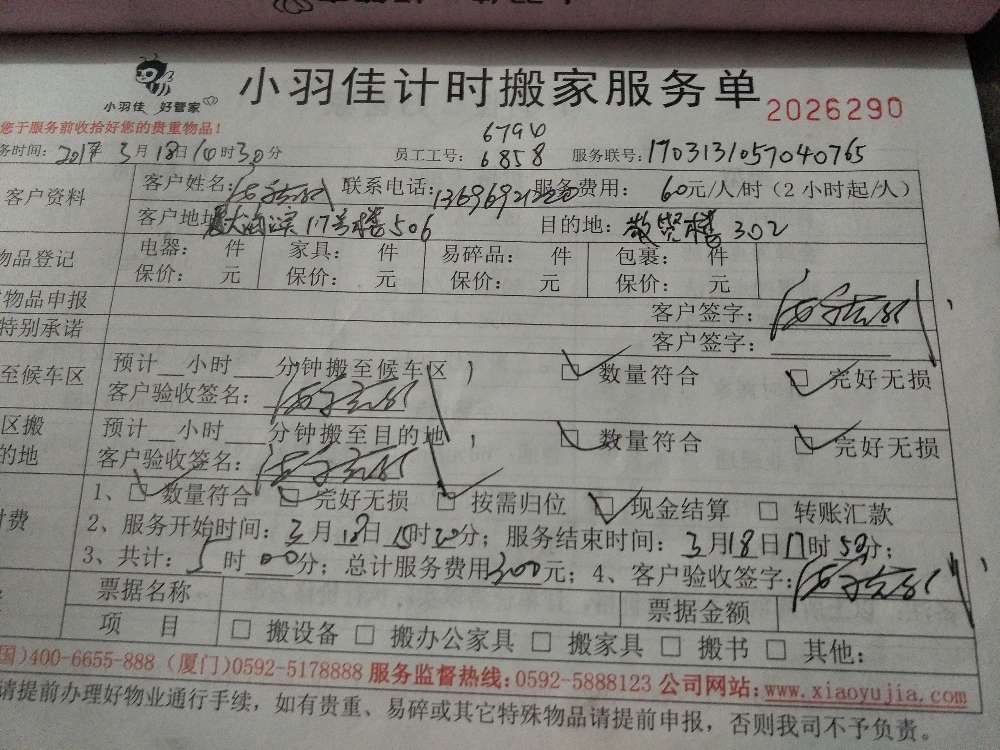 小羽佳计时搬家服务单 2026290
小羽佳 好管家
您于服务前收拾好您的贵重物品!
6794
务时间: 2017年3月18日10时30分 员工工号: 6858 服务联号: 1703131057040765
客户资料 客户姓名: 联系电话: 服务费用: 60元/人/时(2小时起/人)
客户地址: 17号楼506 目的地: 敬贤楼302
物品登记 电器: 件 家具: 件 易碎品: 件 包裹: 件
保价: 元 保价: 元 保价: 元 保价: 元
物品申报 客户签字:
特别承诺 客户签字:
至候车区 预计__小时___分钟搬至候车区 数量符合 完好无损
客户验收签名:
区搬 预计__小时___分钟搬至目的地 数量符合 完好无损
的地 客户验收签名:
1、数量符合 完好无损 按需归位 现金结算 转账汇款
付费 2、服务开始时间: 3月18日15时20分; 服务结束时间: 3月18日17时50分;
3、共计: 5时00分; 总计服务费用300元; 4、客户验收签字:
票据名称 票据金额
项 目 搬设备 搬办公家具 搬家具 搬书 其他:
国)400-6655-888 (厦门)0592-5178888 服务监督热线:0592-5888123 公司网站:www.xiaoyujia.com
请提前办理好物业通行手续,如有贵重、易碎或其它特殊物品请提前申报,否则我司不予负责。